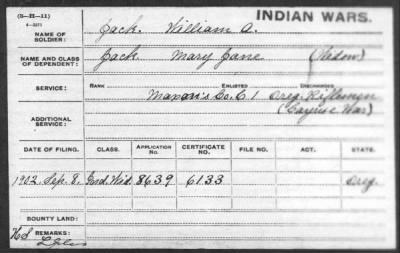 (3-H-11)
INDIAN WARS.
4-3271
NAME OF SOLDIER: Jack. William A.
NAME AND CLASS OF DEPENDENT: Jack Mary Jane (Widow)
SERVICE: RANK ENLISTED DISCHARGED
Co. C 1 Oreg. Riflemen
(Cayuse War)
ADDITIONAL SERVICE:
DATE OF FILING. CLASS. APPLICATION No. CERTIFICATE No. FILE NO. ACT. STATE.
1902. Sep. 8. Ind. Wid. 8639 6133 Oreg.
BOUNTY LAND:
REMARKS: